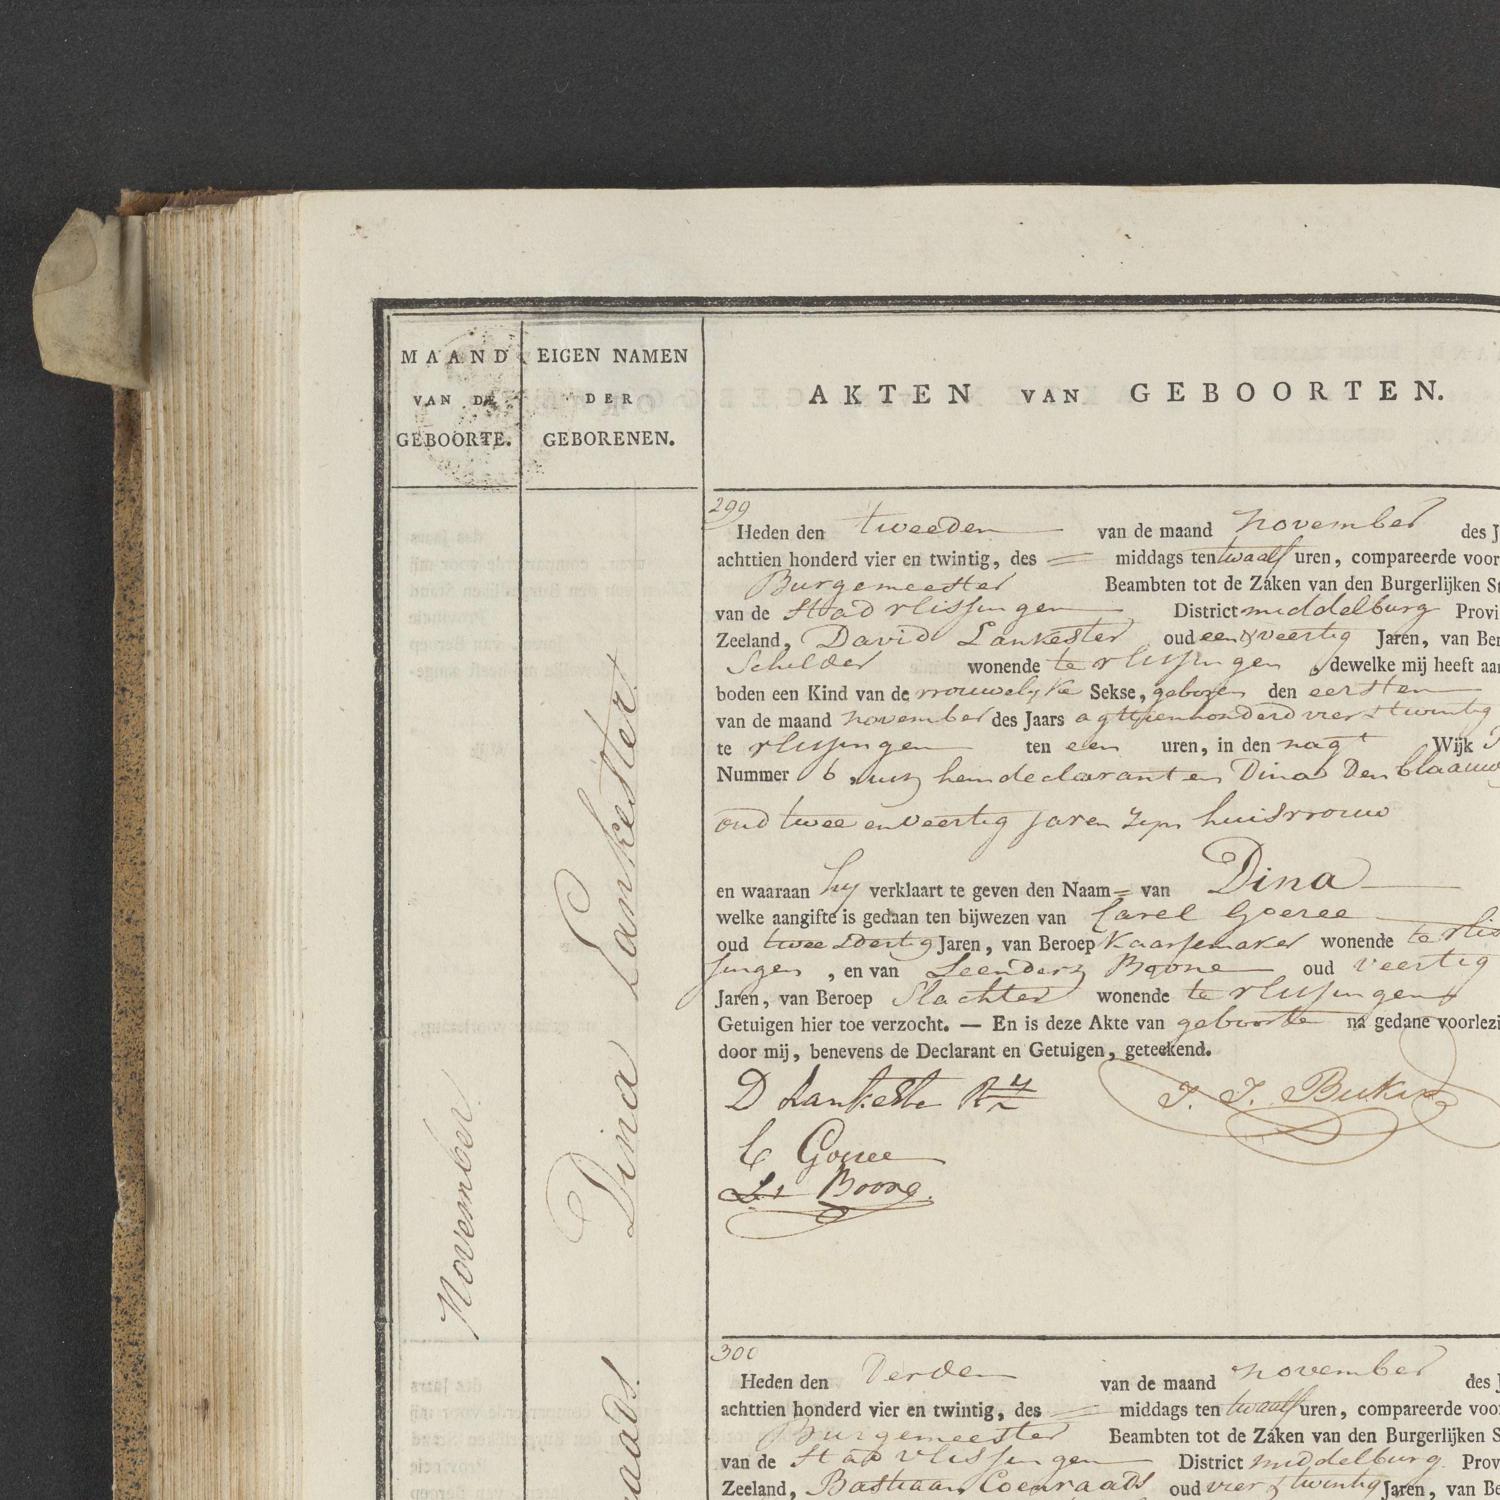 MAAND
VAN DE
GEBOORTE.
EIGEN NAMEN
DER
GEBORENEN.
AKTEN VAN GEBOORTEN.
November
Dina Lankester
299
Heden den tweeden van de maand november des J
achttien honderd vier en twintig, des = middags ten twaalf uren, compareerde voor
Burgemeester Beambten tot de Zaken van den Burgerlijken St
van de Stad vlissingen District middelburg Provi
Zeeland, David Lankester oud een & veertig Jaren, van Ber
Schilder wonende te vlissingen, dewelke mij heeft aan
boden een Kind van de vrouwelyke Sekse, geboren den eersten
van de maand november des Jaars agttienhonderd vier & twintig
te vlissingen ten een uren, in den nagt Wijk
Nummer 6, uit hem declarant en Dina Den Blaauw
oud twee en veertig jaren zyn huisvrouw
en waaraan hy verklaart te geven den Naam = van Dina
welke aangifte is gedaan ten bijwezen van Carel Goeree
oud twee & dertig Jaren, van Beroep Kaarsemaker wonende te vlis
singen, en van Leendert Boone oud veertig
Jaren, van Beroep Slachter wonende te vlissingen
Getuigen hier toe verzocht. — En is deze Akte van geboorte na gedane voorlezi
door mij, benevens de Declarant en Getuigen, geteekend.
D Lankester
C Goeree
Ld Boone.
300
Heden den derden van de maand november des J
achttien honderd vier en twintig, des = middags ten twaalf uren, compareerde voor
Burgemeester Beambten tot de Zaken van den Burgerlijken S
van de Stad vlissingen District middelburg Prov
Zeeland, Bastiaan Coenraads oud vier & twintig Jaren, van Be
raads.